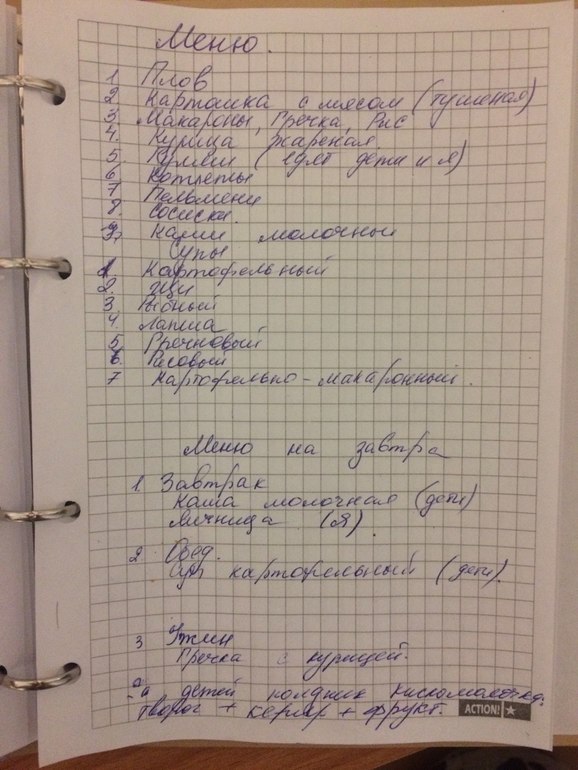 Меню.
1 Плов
2 Картошка с мясом (тушеная)
3. Макароны, Гречка, Рис
4. Курица жареная
5. (едят дети и я)
6 Котлеты
7 Пельмени
8. Сосиски.
9. Каши молочный
Супы
1. Картофельный
2. Щи
3 Рыбный
4. Лапша
5 Гречневый
6. Рисовый
7 Картофельно-макаронный.
Меню на завтра
1 Завтрак
Каша молочная (дети)
Яичница (Я).
2 Обед.
Суп картофельный (дети).
3 Ужин
Гречка с курицей.
а детей полдник кисломолочка:
творог + кефир + фрукт.
ACTION!